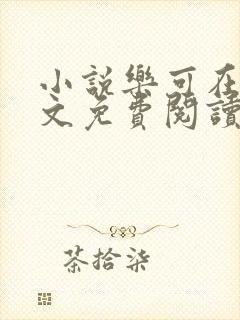 小説樂可在
文免費閱讀
茶拾柒